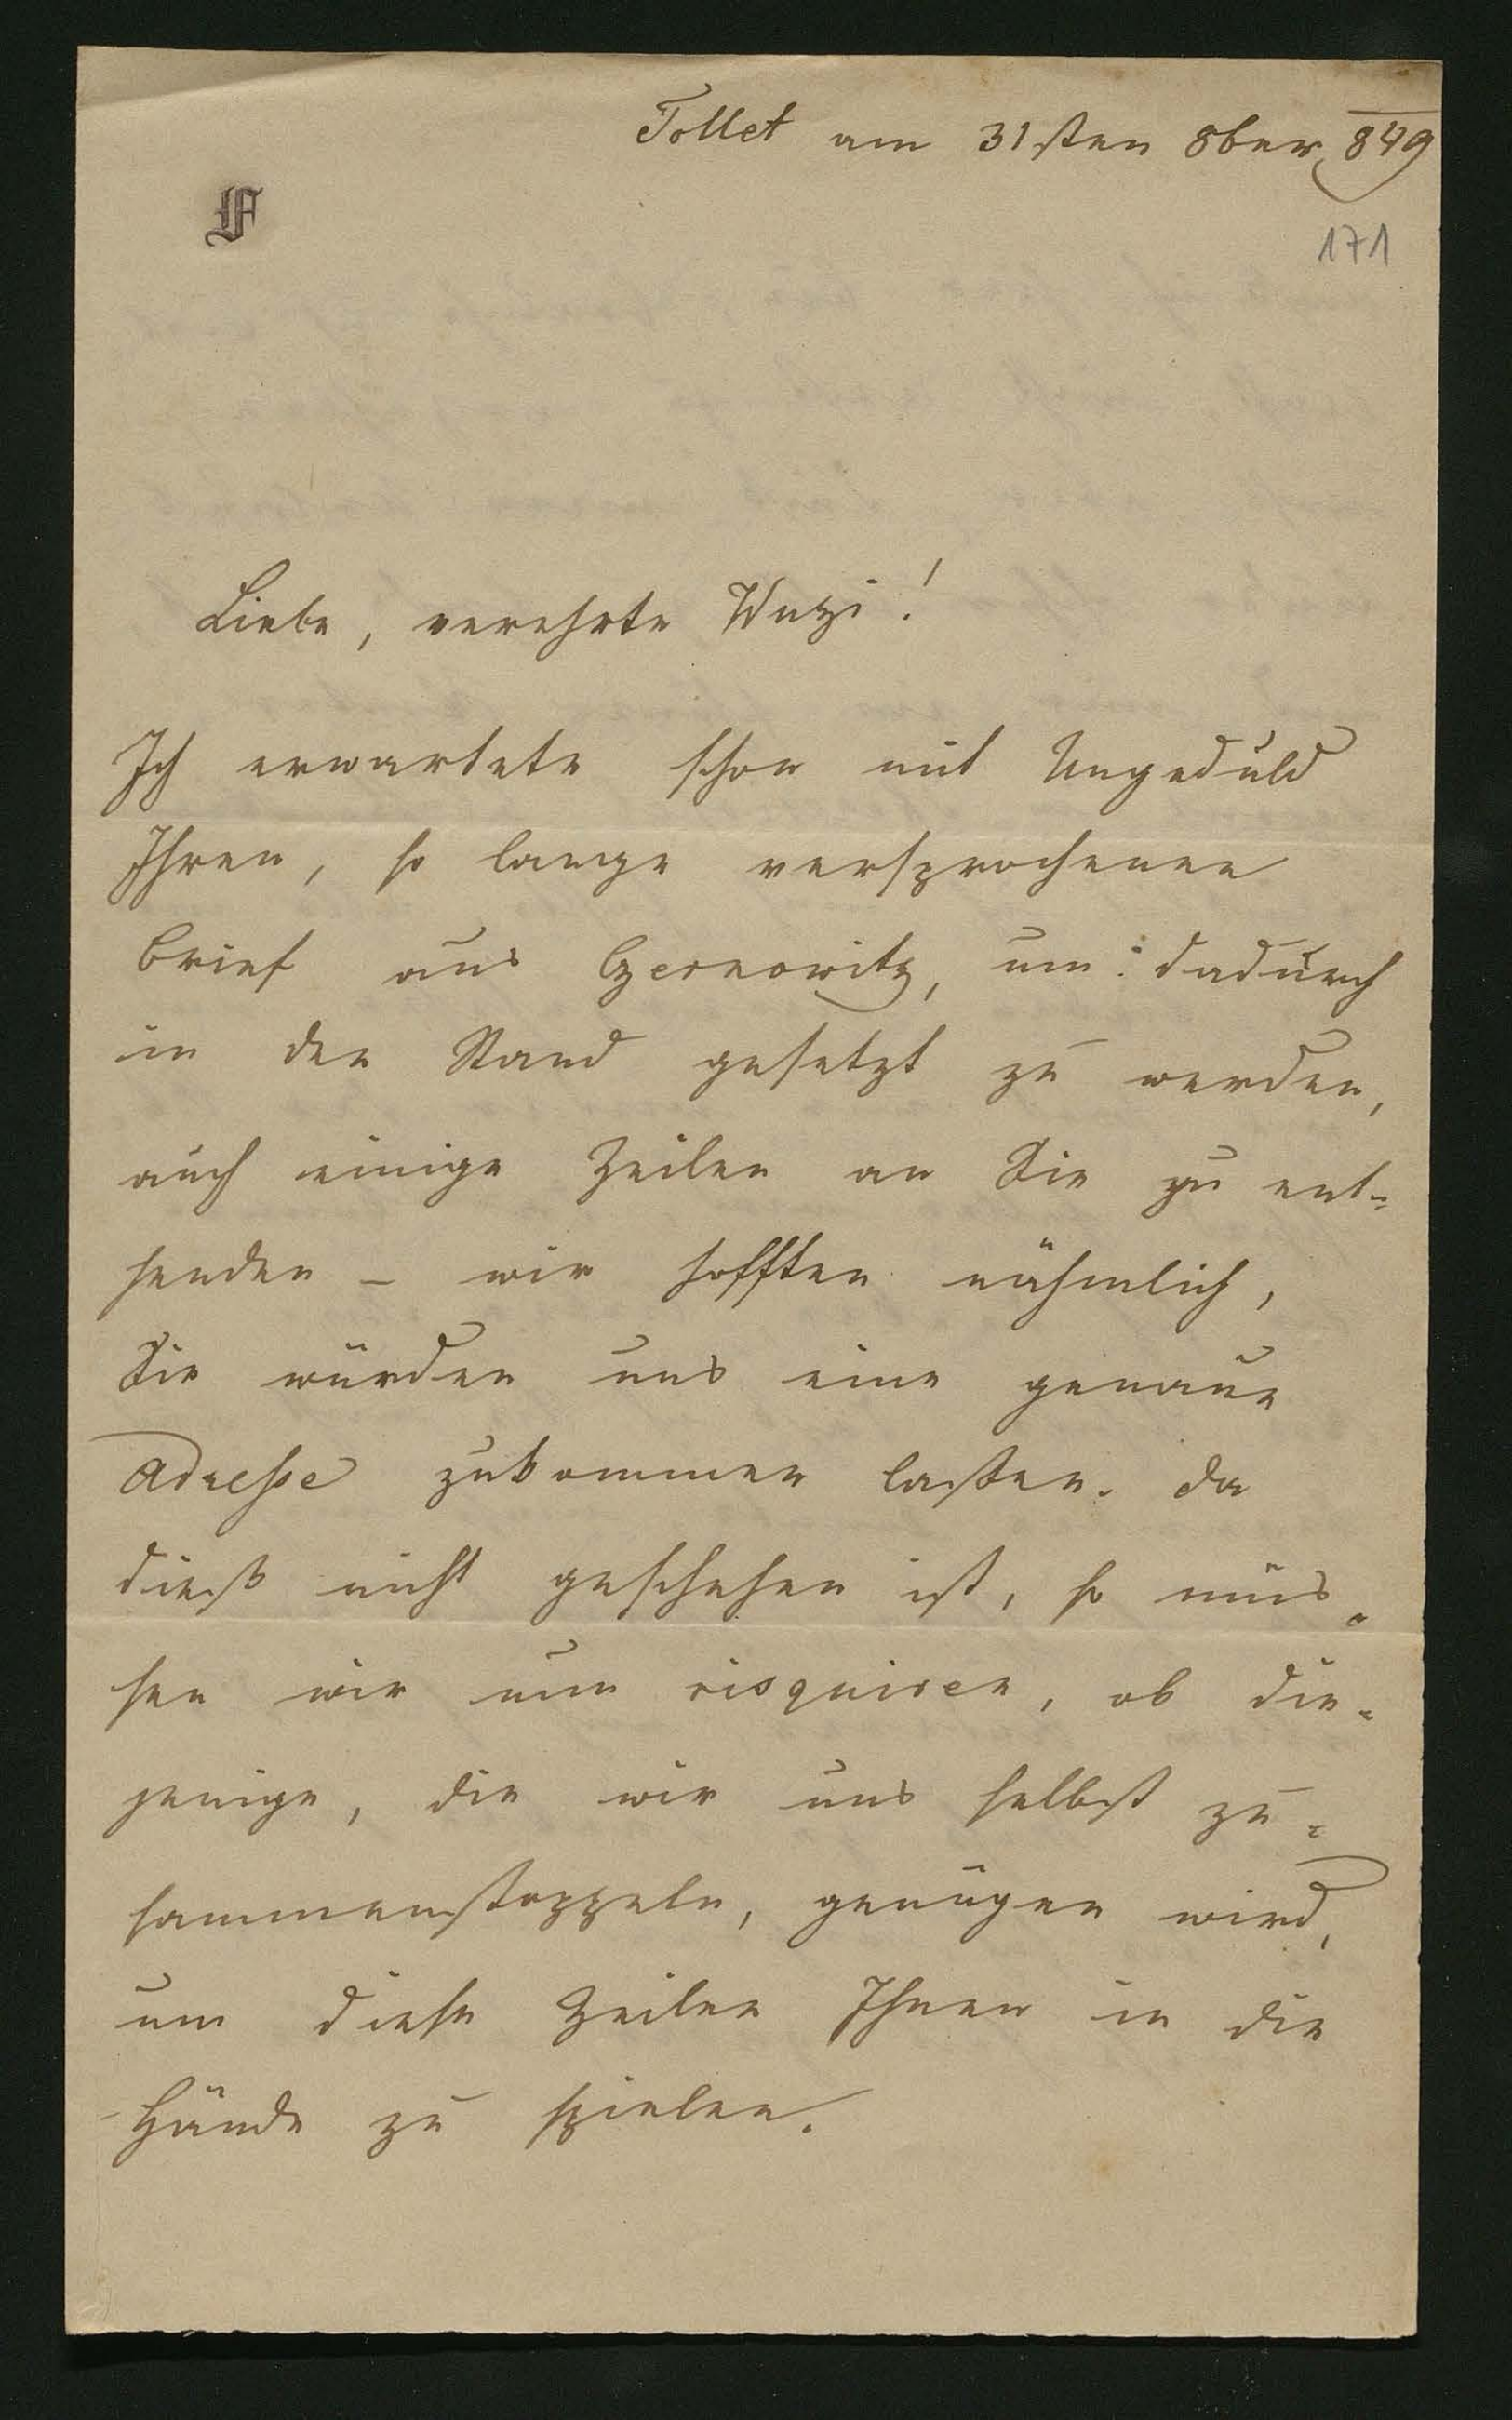 Tollet am 31sten 8ber 849
F
171
Liebe, verehrte Wuzi!
Ich erwartete schon mit Ungeduld
Ihren, so lange versprochenen
Brief aus Czernowitz, um dadurch
in den Stand gesetzt zu werden,
auch einige Zeilen an Sie zu ent-
senden – wir hofften nähmlich,
Sie würden uns eine genaue
Adresse zukommen lassen. Da
dieß nicht geschehen ist, so müs-
sen wir nun risquiren, ob die-
jenige, die wir uns selbst zu-
sammenstoppeln, genügen wird,
um diese Zeilen Ihnen in die
Hände zu spielen.